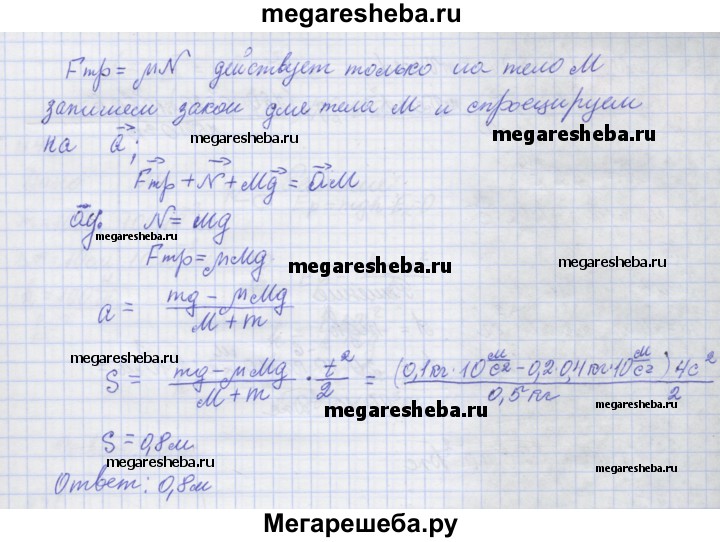 megaresheba.ru
Fтр = μN действует только на тело M
запишем закон для тела M и спроецируем
megaresheba.ru
megaresheba.ru
megaresheba.ru
на a⃗;
megaresheba.ru
F⃗тр + N⃗ + Mg⃗ = a⃗M
megaresheba.ru
oy: N = Mg
megaresheba.ru
megaresheba.ru
Fтр = μMg
megaresheba.ru
megaresheba.ru
a = (mg − μMg) / (M + m)
megaresheba.ru
megaresheba.ru
S = (mg − μMg) / (M + m) · t²/2 = (0,1кг·10 м/с² − 0,2·0,4кг·10 м/с²) 4с² / (0,5кг 2)
megaresheba.ru
megaresheba.ru
S = 0,8м
megaresheba.ru
megaresheba.ru
Ответ: 0,8м
Мегарешеба.ру